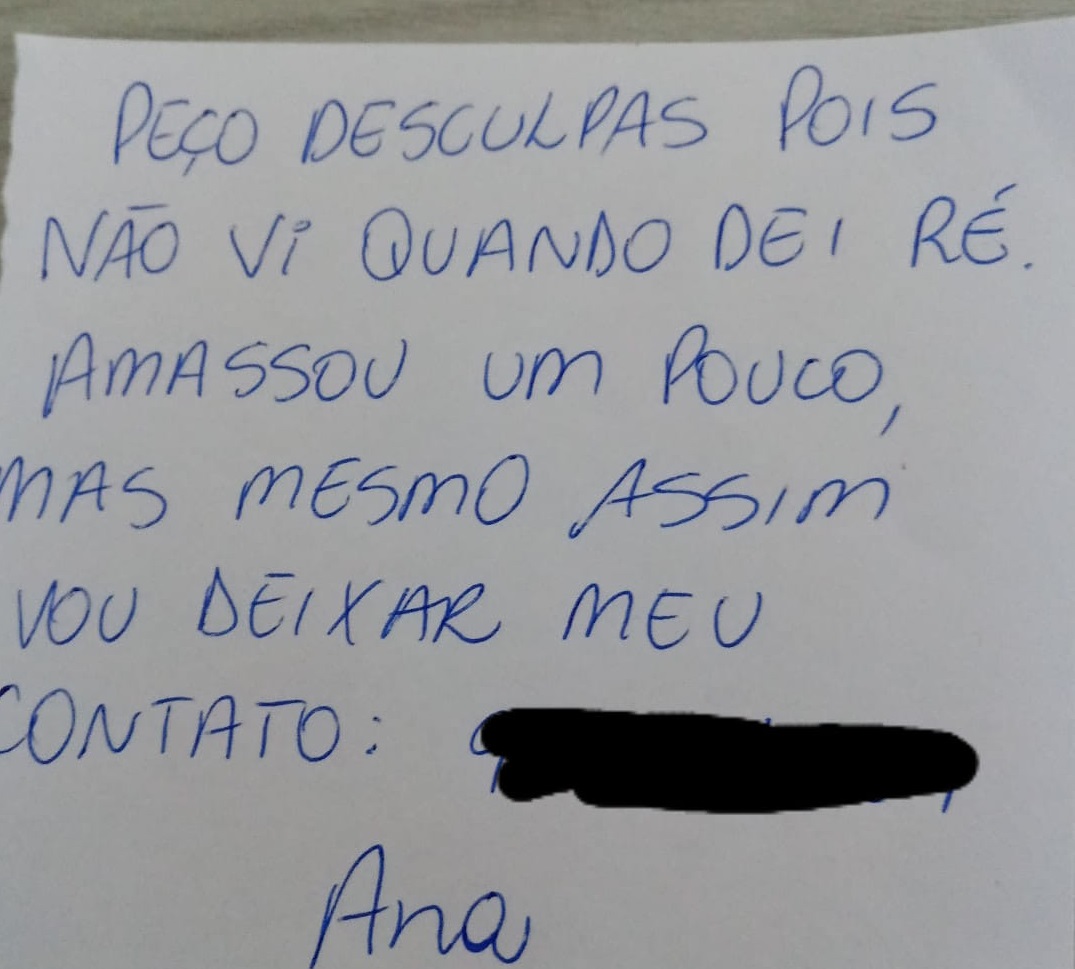 PEÇO DESCULPAS POIS
NÃO VI QUANDO DEI RÉ.
AMASSOU UM POUCO,
MAS MESMO ASSIM
VOU DEIXAR MEU
CONTATO:
Ana